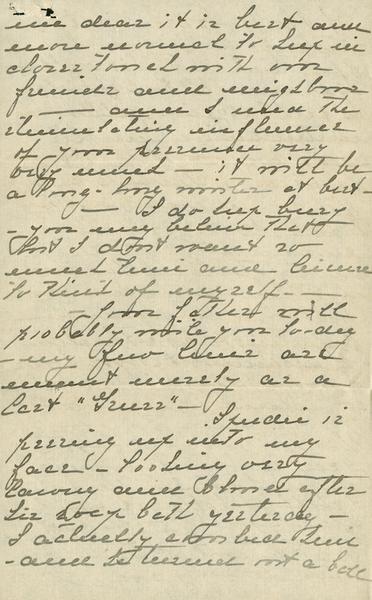 me dear it is best and
more normal to keep in
closer touch with our
friends and neighbors
— and I need the
stimulating influence
of your presence very
very much — it will be
a long-long winter at best —
— I do keep busy
- you may believe that
but I don't want so
much time and leisure
to think of myself. —
— Your father will
probably write you to-day
— my few lines are
meant merely as a
last "Gruss" —
is
peering up into my
face — looking very
tawny and blond after
his soap bath yesterday —
I actually scrubbed him
- and he turned out a